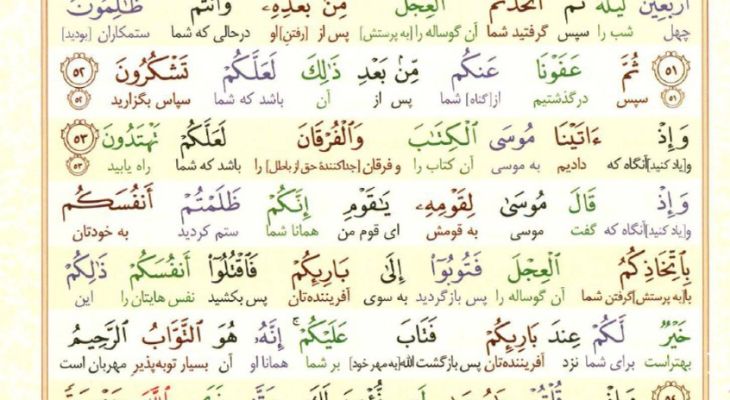 أَرْبَعِينَ لَيْلَةً ثُمَّ اتَّخَذْتُمُ الْعِجْلَ مِنْ بَعْدِهِ وَأَنْتُمْ ظَالِمُونَ
چهل شب را سپس گرفتید شما آن گوساله را [به پرستش] پس از [رفتنِ] او درحالی که شما ستمکاران [بودید]
۵۱ ثُمَّ عَفَوْنَا عَنكُم مِّنْ بَعْدِ ذَٰلِكَ لَعَلَّكُمْ تَشْكُرُونَ ۵۲
۵۱ سپس درگذشتیم از [گناه] شما پس از آن باشد که شما سپاس بگزارید ۵۲
وَإِذْ ءَاتَيْنَا مُوسَى الْكِتَابَ وَالْفُرْقَانَ لَعَلَّكُمْ تَهْتَدُونَ ۵۳
و[یاد کنید] آنگاه که دادیم به موسی آن کتاب را و فرقان [جداکنندهٔ حق از باطل] را باشد که شما راه یابید ۵۳
وَإِذْ قَالَ مُوسَىٰ لِقَوْمِهِۦ يَاقَوْمِ إِنَّكُمْ ظَلَمْتُمْ أَنفُسَكُم
و[یاد کنید] آنگاه که گفت موسی به قومش ای قوم من همانا شما ستم کردید به خودتان
بِاتِّخَاذِكُمُ الْعِجْلَ فَتُوبُوٓا إِلَىٰ بَارِئِكُمْ فَاقْتُلُوٓا أَنفُسَكُمْ ذَٰلِكُمْ
با [به پرستش] گرفتن شما آن گوساله را پس بازگردید به سوی آفریننده‌تان پس بکشید نفس هایتان را این
خَيْرٌ لَّكُمْ عِندَ بَارِئِكُمْ فَتَابَ عَلَيْكُمْ ۚ إِنَّهُۥ هُوَ التَّوَّابُ الرَّحِيمُ
بهتر است برای شما نزد آفریننده‌تان پس بازگشت الله [به مهر خود] بر شما همانا او آن بسیار توبه‌پذیر مهربان است
۵۴